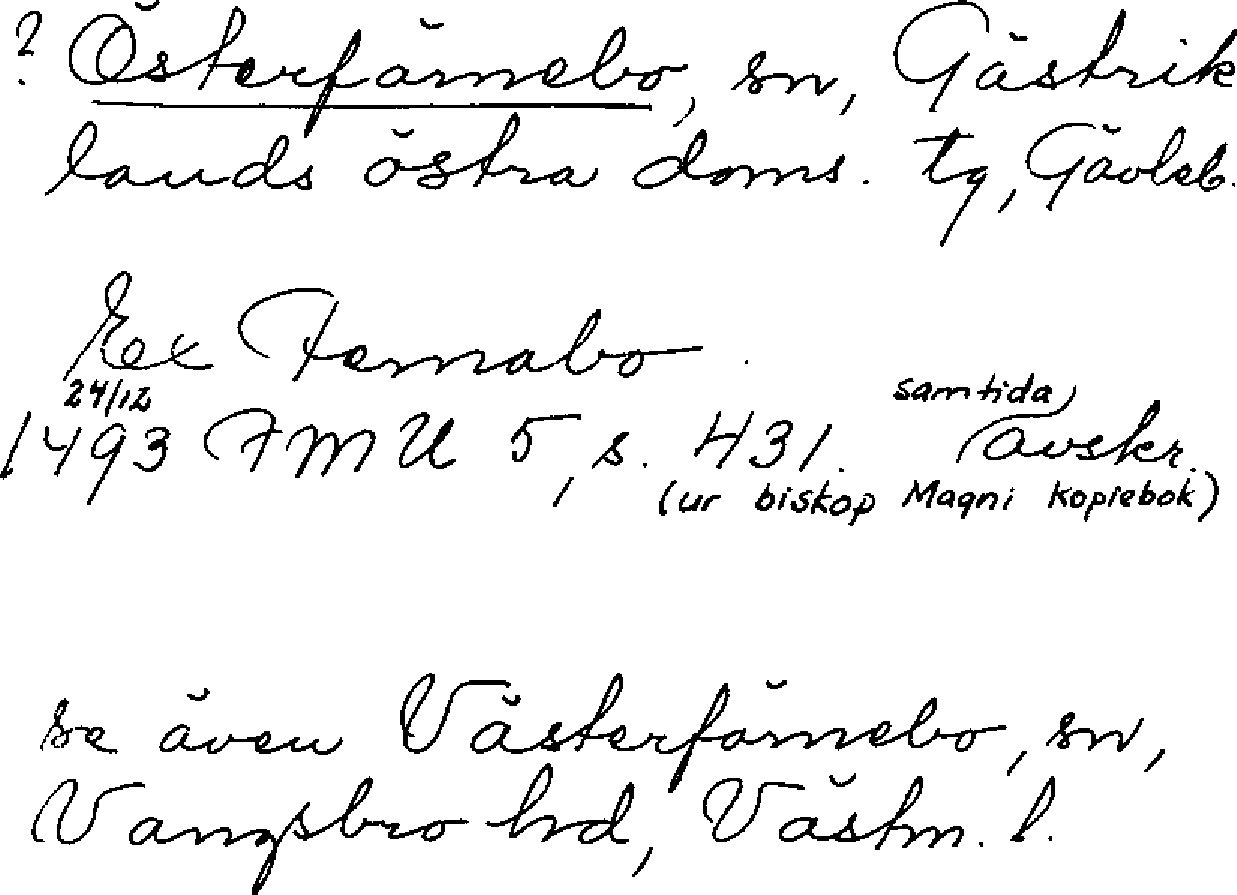 ? Österfärnebo, sn, Gästrik
lands östra doms. tg, Gävleb.
Ex Fernabo.
24/12
1493 FMU 5, s. 431. samtida avskr.
(ur biskop Magni kopiebok)
se även Västerfärnebo, sn,
Vangsbro hd, Västm. l.